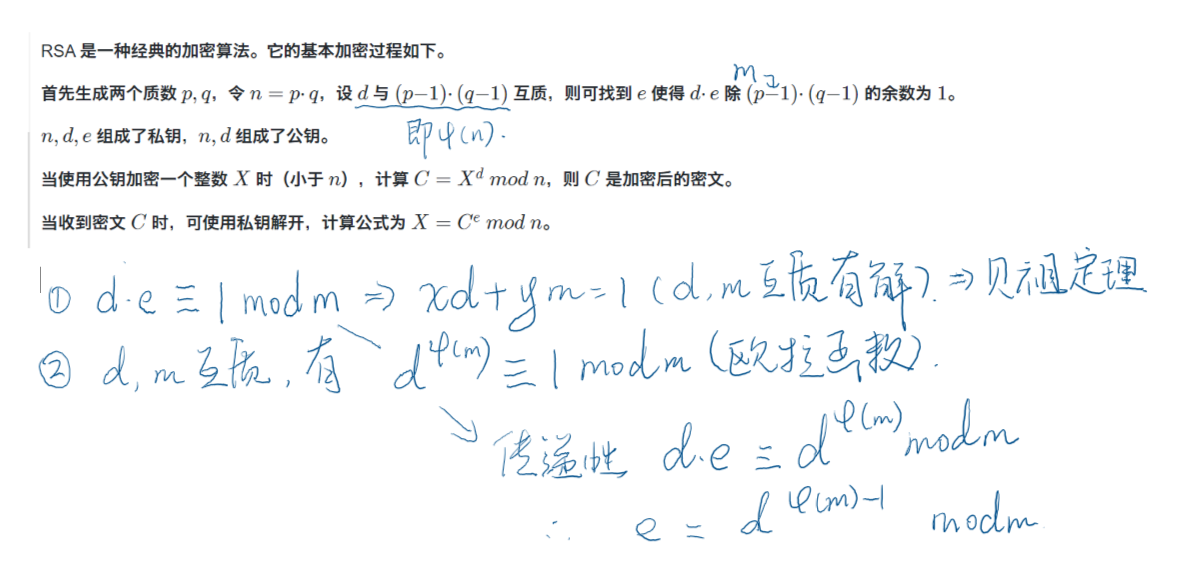 RSA 是一种经典的加密算法。它的基本加密过程如下。
m
首先生成两个质数 p, q，令 n = p· q，设 d 与 (p−1)· (q−1) 互质，则可找到 e 使得 d· e 除 (p−1)· (q−1) 的余数为 1。
即φ(n).
n, d, e 组成了私钥，n, d 组成了公钥。
当使用公钥加密一个整数 X 时（小于 n），计算 C = X^d mod n，则 C 是加密后的密文。
当收到密文 C 时，可使用私钥解开，计算公式为 X = C^e mod n。
① d·e ≡ 1 mod m ⇒ xd+ym=1 (d, m 互质有解). ⇒ 贝祖定理
② d, m 互质, 有 d^φ(m) ≡ 1 mod m (欧拉函数).
传递性 d·e ≡ d^φ(m) mod m
∴ e = d^φ(m)-1 mod m